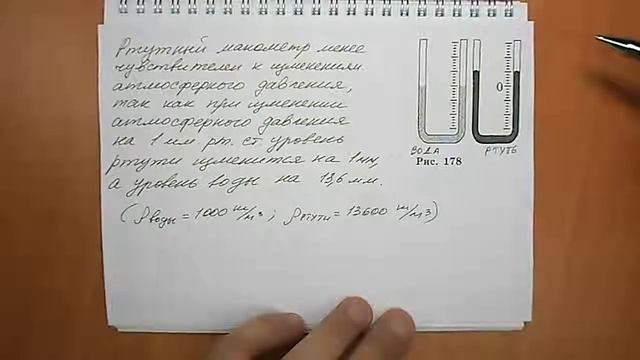 Ртутный манометр менее
чувствителен к изменениям
атмосферного давления,
так как при изменении
атмосферного давления
на 1 мм. рт. ст. уровень
ртути изменится на 1 мм,
а уровень воды на 13,6 мм.
(ρводы = 1000 кг/м³; ρртути = 13600 кг/м³)
0
ВОДА РТУТЬ
Рис. 178